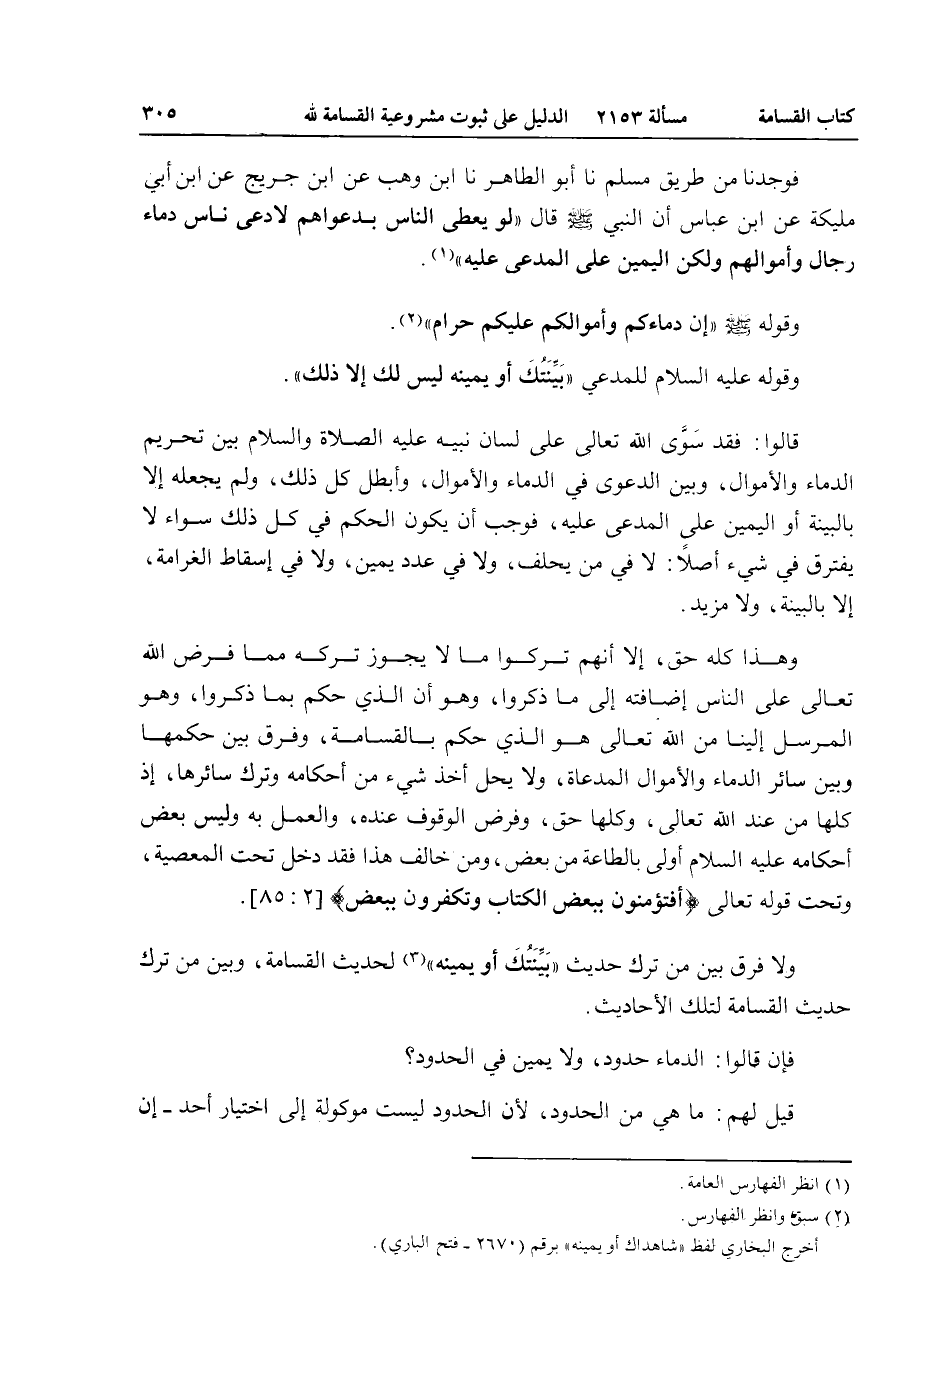 كتاب القسامة مسألة ٢١٥٣ الدليل على ثبوت مشروعية القسامة لله ٣٠٥
فوجدنا من طريق مسلم نا أبو الطاهر نا ابن وهب عن ابن جريج عن ابن أبي
مليكة عن ابن عباس أن النبي ﷺ قال «لو يعطى الناس بدعواهم لادعى ناس دماء
رجال وأموالهم ولكن اليمين على المدعى عليه»(١).
وقوله ﷺ «إن دماءكم وأموالكم عليكم حرام»(٢).
وقوله عليه السلام للمدعي «بَيِّنَتُكَ أو يمينه ليس لك إلا ذلك».
قالوا: فقد سَوَّى الله تعالى على لسان نبيه عليه الصلاة والسلام بين تحريم
الدماء والأموال، وبين الدعوى في الدماء والأموال، وأبطل كل ذلك، ولم يجعله إلا
بالبينة أو اليمين على المدعى عليه، فوجب أن يكون الحكم في كل ذلك سواء لا
يفترق في شيء أصلاً: لا في من يحلف، ولا في عدد يمين، ولا في إسقاط الغرامة،
إلا بالبينة، ولا مزيد.
وهذا كله حق، إلا أنهم تركوا ما لا يجوز تركه مما فرض الله
تعالى على الناس إضافته إلى ما ذكروا، وهو أن الذي حكم بما ذكروا، وهو
المرسل إلينا من الله تعالى هو الذي حكم بالقسامة، وفرق بين حكمها
وبين سائر الدماء والأموال المدعاة، ولا يحل أخذ شيء من أحكامه وترك سائرها، إذ
كلها من عند الله تعالى، وكلها حق، وفرض الوقوف عنده، والعمل به وليس بعض
أحكامه عليه السلام أولى بالطاعة من بعض، ومن خالف هذا فقد دخل تحت المعصية،
وتحت قوله تعالى ﴿أفتؤمنون ببعض الكتاب وتكفرون ببعض﴾ [٢: ٨٥].
ولا فرق بين من ترك حديث «بَيِّنَتُكَ أو يمينه»(٣) لحديث القسامة، وبين من ترك
حديث القسامة لتلك الأحاديث.
فإن قالوا: الدماء حدود، ولا يمين في الحدود؟
قيل لهم: ما هي من الحدود، لأن الحدود ليست موكولة إلى اختيار أحد ـ إن
(١) انظر الفهارس العامة.
(٢) سبق وانظر الفهارس.
أخرج البخاري لفظ «شاهداك أو يمينه» برقم (٢٦٧٠ ـ فتح الباري).